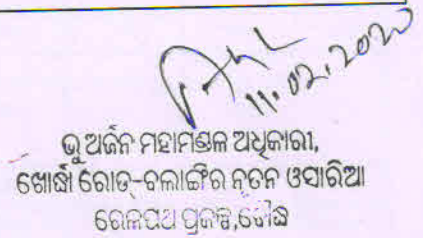 11.02.2020
ଭୂ ଅର୍ଜନ ମହାମଣ୍ଡଳ ଅଧିକାରୀ,
ଖୋର୍ଦ୍ଧା ରୋଡ-ବଲାଙ୍ଗିର ନୂତନ ଓସାରିଆ
ରେଳପଥ ପ୍ରକଳ୍ପ,ବୌଦ୍ଧ